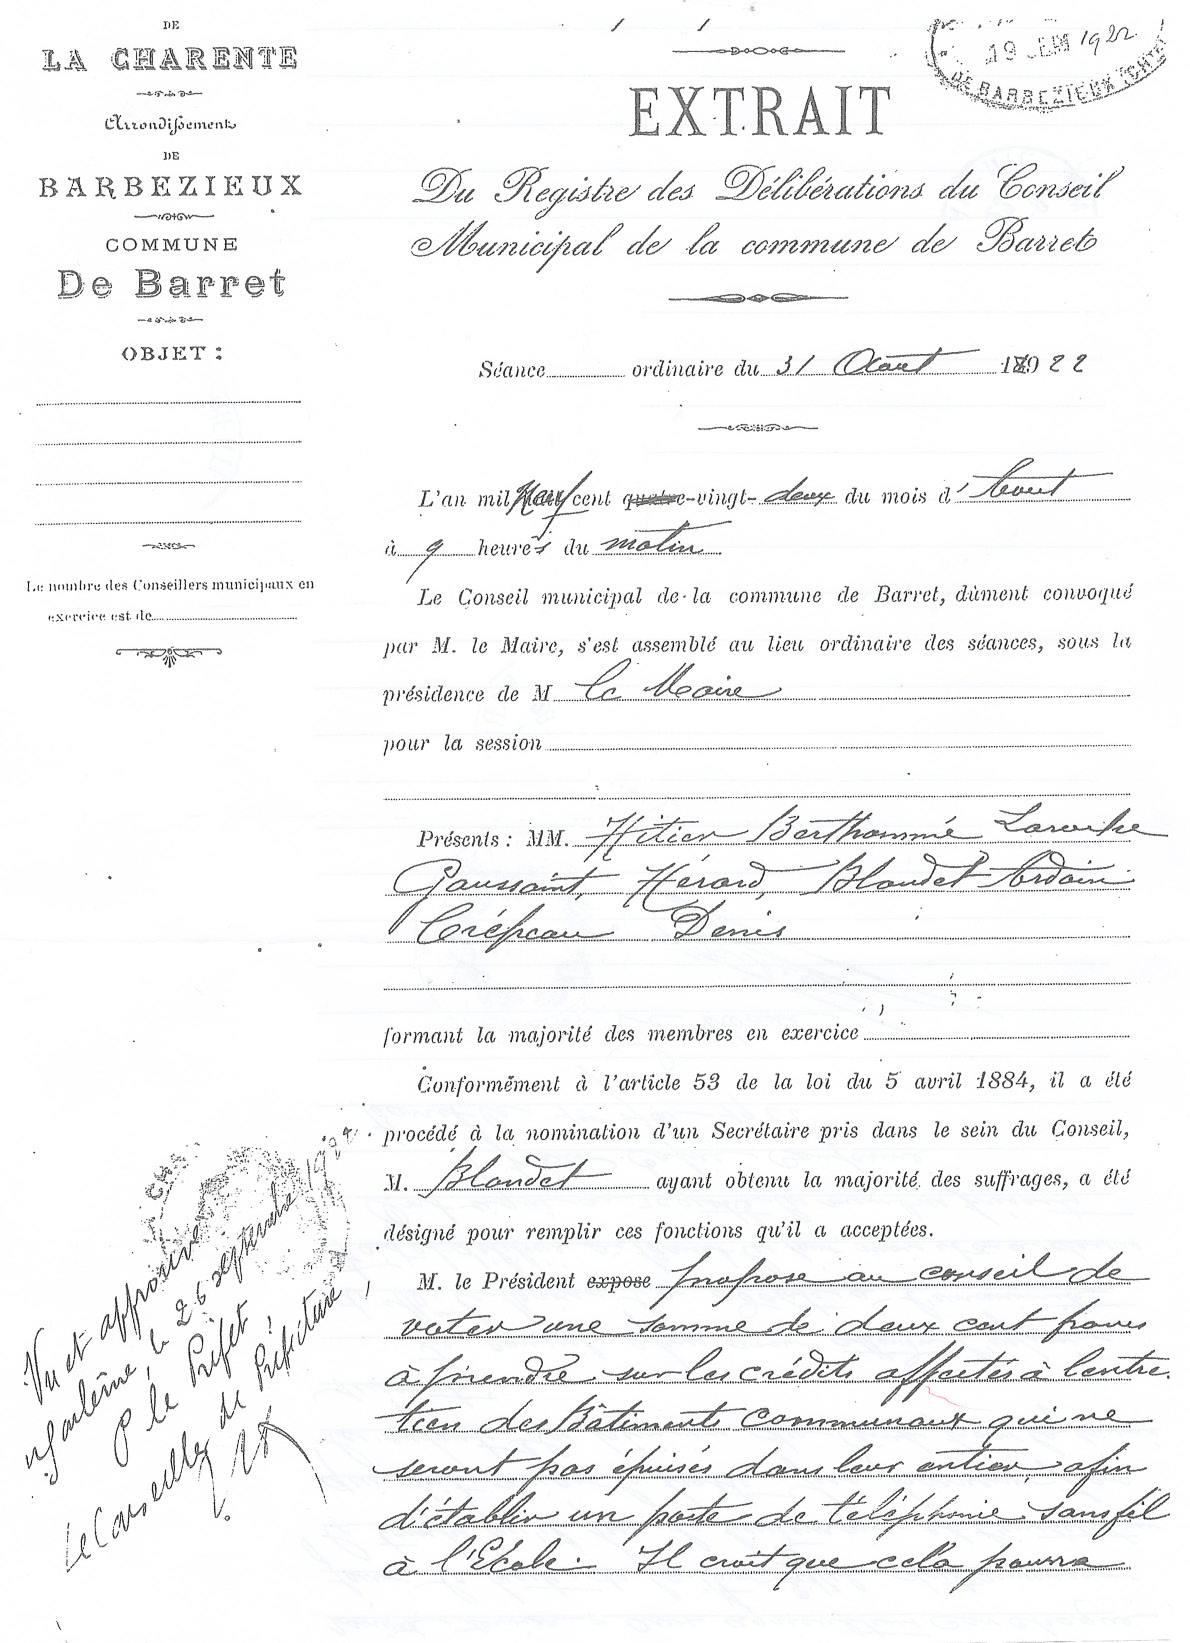 DE
LA CHARENTE
Arrondissement
DE
BARBEZIEUX
COMMUNE
De Barret
OBJET :
Le nombre des Conseillers municipaux en
exercice est de
19 1922
DE BARBEZIEUX (CHTE)
EXTRAIT
Du Registre des Délibérations du Conseil
Municipal de la commune de Barret
Séance ordinaire du 31 Août 1922
L'an mil neuf cent quatre-vingt-deux du mois d'Aout
à 9 heures du matin
Le Conseil municipal de la commune de Barret, dûment convoqué
par M. le Maire, s'est assemblé au lieu ordinaire des séances, sous la
présidence de M le Maire
pour la session
Présents : MM. Hitier Berthommé
Goussaint, Hérard, Blondet Ardoin
Crépeau Denis
formant la majorité des membres en exercice
Conformément à l'article 53 de la loi du 5 avril 1884, il a été
procédé à la nomination d'un Secrétaire pris dans le sein du Conseil,
M. Blondet ayant obtenu la majorité des suffrages, a été
désigné pour remplir ces fonctions qu'il a acceptées.
M. le Président expose propose au conseil de
voter une somme de deux cent francs
à prendre sur les crédits affectés à l'entre
tien des Bâtiments communaux qui ne
seront pas épuisés dans leur entier, afin
d'établir un poste de téléphonie sans fil
à l'Ecole. Il croit que cela pourra
Vu et approuvé
Angoulême, le 26 septembre 1922
P le Préfet
Le Conseiller de Préfecture